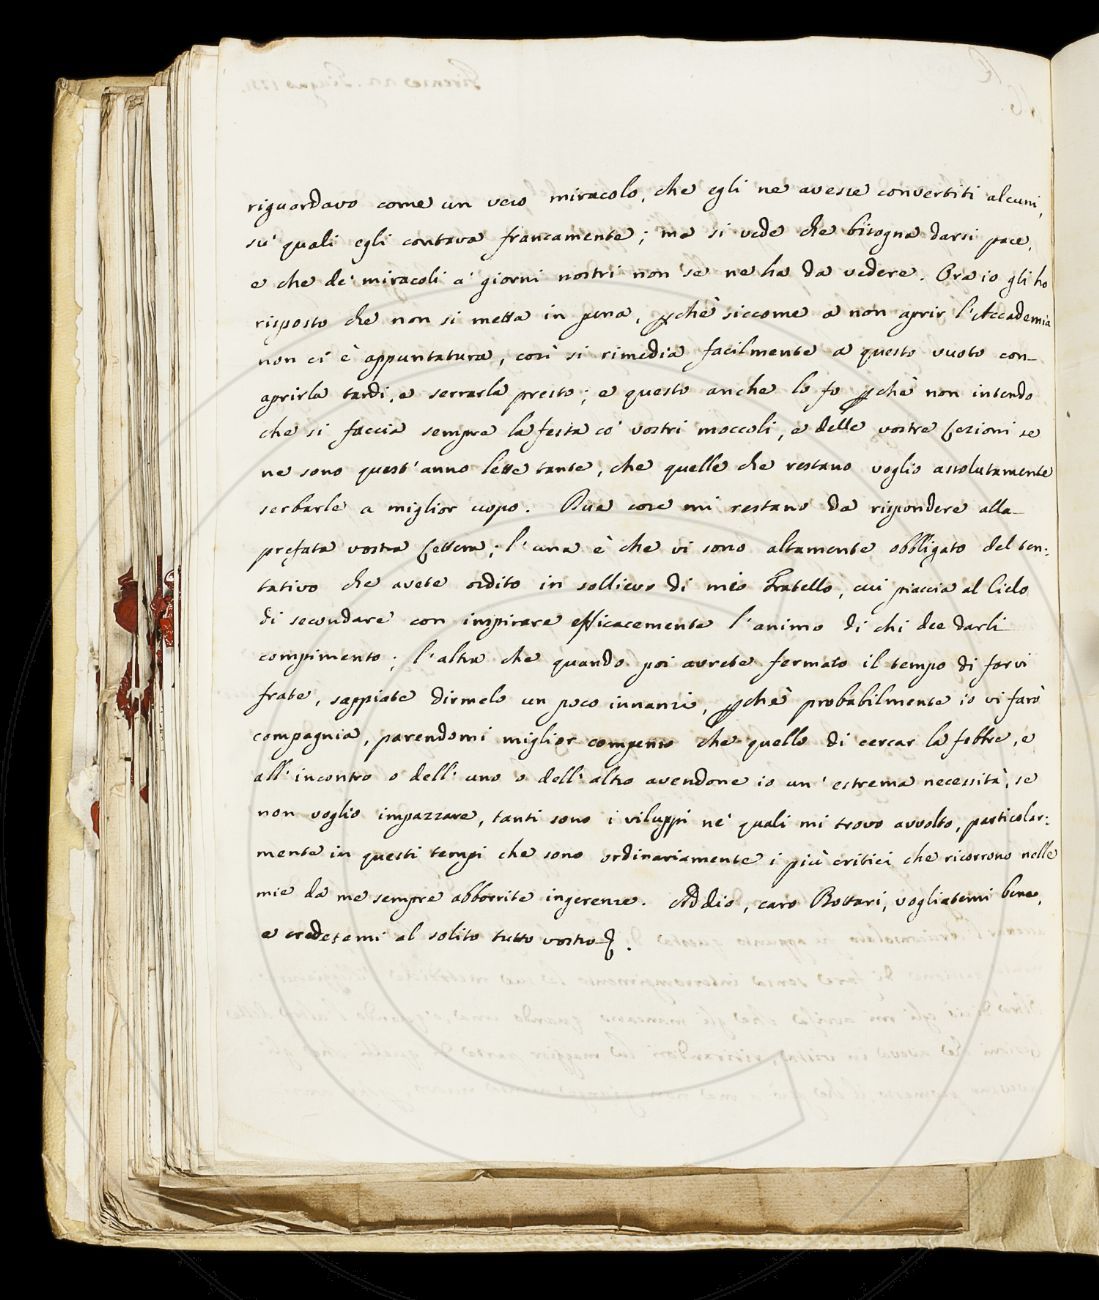 riguardavo come un vero miracolo, che egli ne avesse convertiti alcuni,
su' quali egli contava francamente; ma si vede che bisogna darsi pace,
e che de' miracoli a' giorni nostri non se ne ha da vedere. Ora io gli ho
risposto che non si metta in pena, pchè siccome a non aprir l'Accademia
non ci è appuntatura, così si rimedia facilmente a questo vuoto con-
aprirla tardi, e serrarla presto; e questo anche lo fo pchè non intendo
che si faccia sempre la festa co' vostri moccoli, e delle vostre Lezioni se
ne sono quest'anno lette tante, che quelle che restano voglio assolutamente
serbarle a miglior uopo. Due cose mi restano da rispondere alla
prefata vostra Lettera; l'una è che vi sono altamente obbligato del ten:
tativo che avete ordito in sollievo di mio Fratello, cui piaccia al Cielo
di secondare con inspirare efficacemente l'animo di chi dee darli
compimento; l'altra che quando poi avrete fermato il tempo di farvi
frate, sappiate dirmelo un poco innanzi, pchè probabilmente io vi farò
compagnia, parendomi miglior compenso che quello di cercar la febbre, e
all'incontro o dell'uno o dell'altro avendone io un'estrema necessità, se
non voglio impazzare, tanti sono i viluppi ne' quali mi trovo avvolto, particolar:
mente in questi tempi che sono ordinariamente i più critici che ricorrono nelle
mie da me sempre abborrite ingerenze. Addio, caro Bottari, vogliatemi bene,
e credetemi al solito tutto vostro